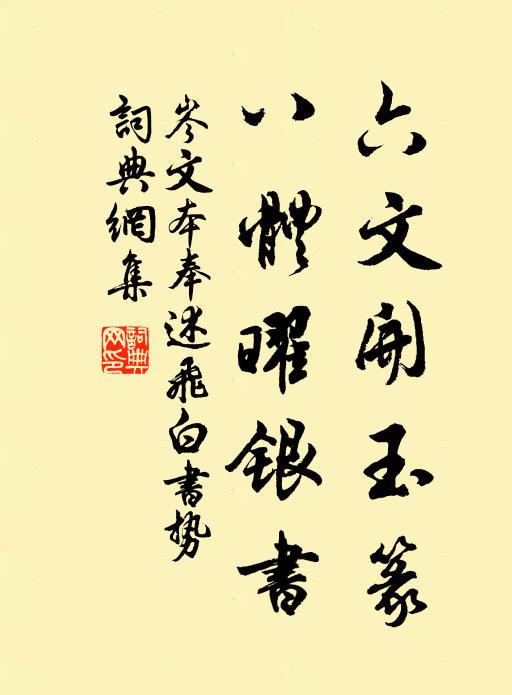 六文開玉篆
八體曜銀書
岑文本奉述飛白書勢
詞典網集
詞典網印